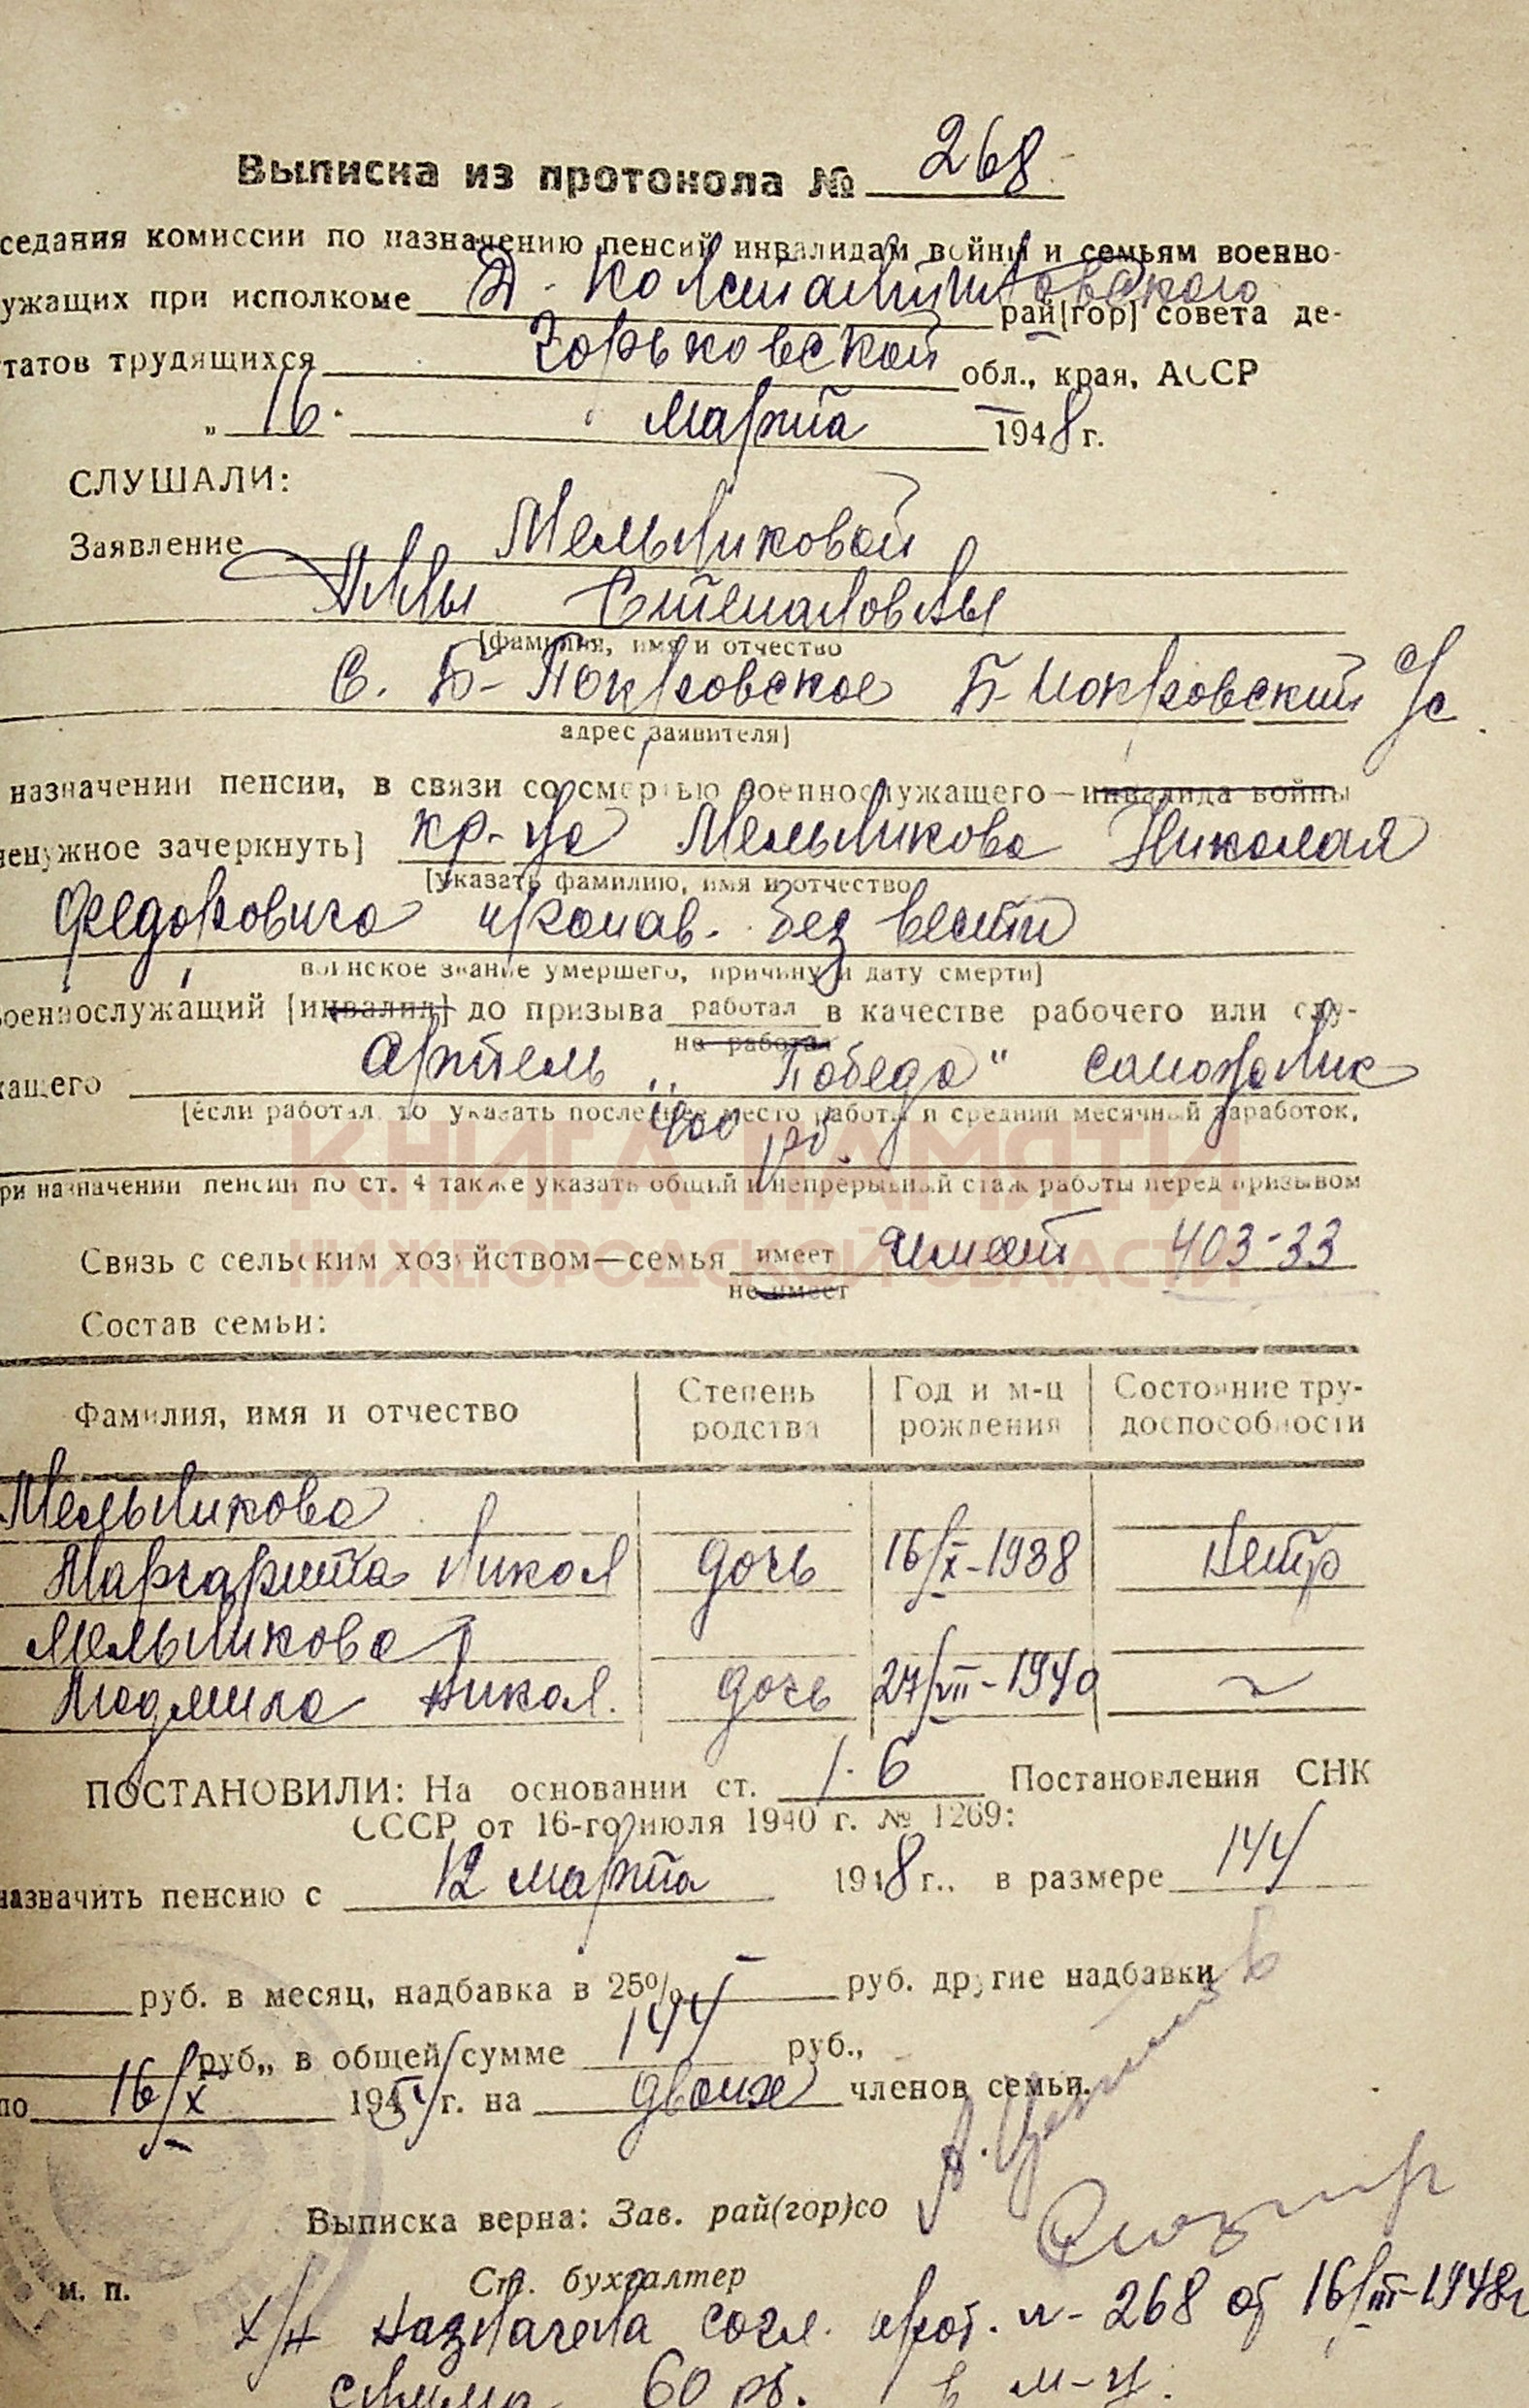 Выписка из протокола № 268
седания комиссии по назначению пенсий инвалидам войны и семьям военно-
ужащих при исполкоме Д-Константиновского рай[гор] совета де-
татов трудящихся Горьковской обл., края, АССР
„ 16. " марта 1948 г.
СЛУШАЛИ:
Заявление Мельниковой
Анны Степановны
[фамилия, имя и отчество
с. Б-Покровское Б-Покровский с/с.
адрес заявителя]
назначении пенсии, в связи со смертью военнослужащего—инвалида войны
ненужное зачеркнуть] кр-ца Мельникова Николая
[указать фамилию, имя и отчество,
Федоровича пропав. без вести
воинское звание умершего, причину и дату смерти]
военнослужащий [инвалид] до призыва работал в качестве рабочего или слу-
не работал
жащего Артель „Победа"
[если работал, то указать последнее место работы и средний месячный заработок,
400 рб.
КНИГА ПАМЯТИ
ри назначении пенсии по ст. 4 также указать общий и непрерывный стаж работы перед призывом
НИЖЕГОРОДСКОЙ ОБЛАСТИ
Связь с сельским хозяйством—семья имеет имеет 403-33
не имеет
Состав семьи:
Фамилия, имя и отчество Степень родства Год и м-ц рождения Состояние тру-доспособности
Мельникова
Маргарита Никол дочь 16/X-1938 нетр
Мельникова
Людмила Никол. дочь 27/VII-1940 〃
ПОСТАНОВИЛИ: На основании ст. 1.6 Постановления СНК
СССР от 16-го июля 1940 г. № 1269:
назначить пенсию с 12 марта 1948 г., в размере 144
руб. в месяц, надбавка в 25% — руб. другие надбавки
руб., в общей сумме 144 руб.,
по 16/X 1954 г. на двоих членов семьи.
Выписка верна: Зав. рай(гор)со
Ст. бухгалтер
м. п.
х/н назначена согл. прот. н-268 от 16/III-1948г
60 рб. в м-ц.